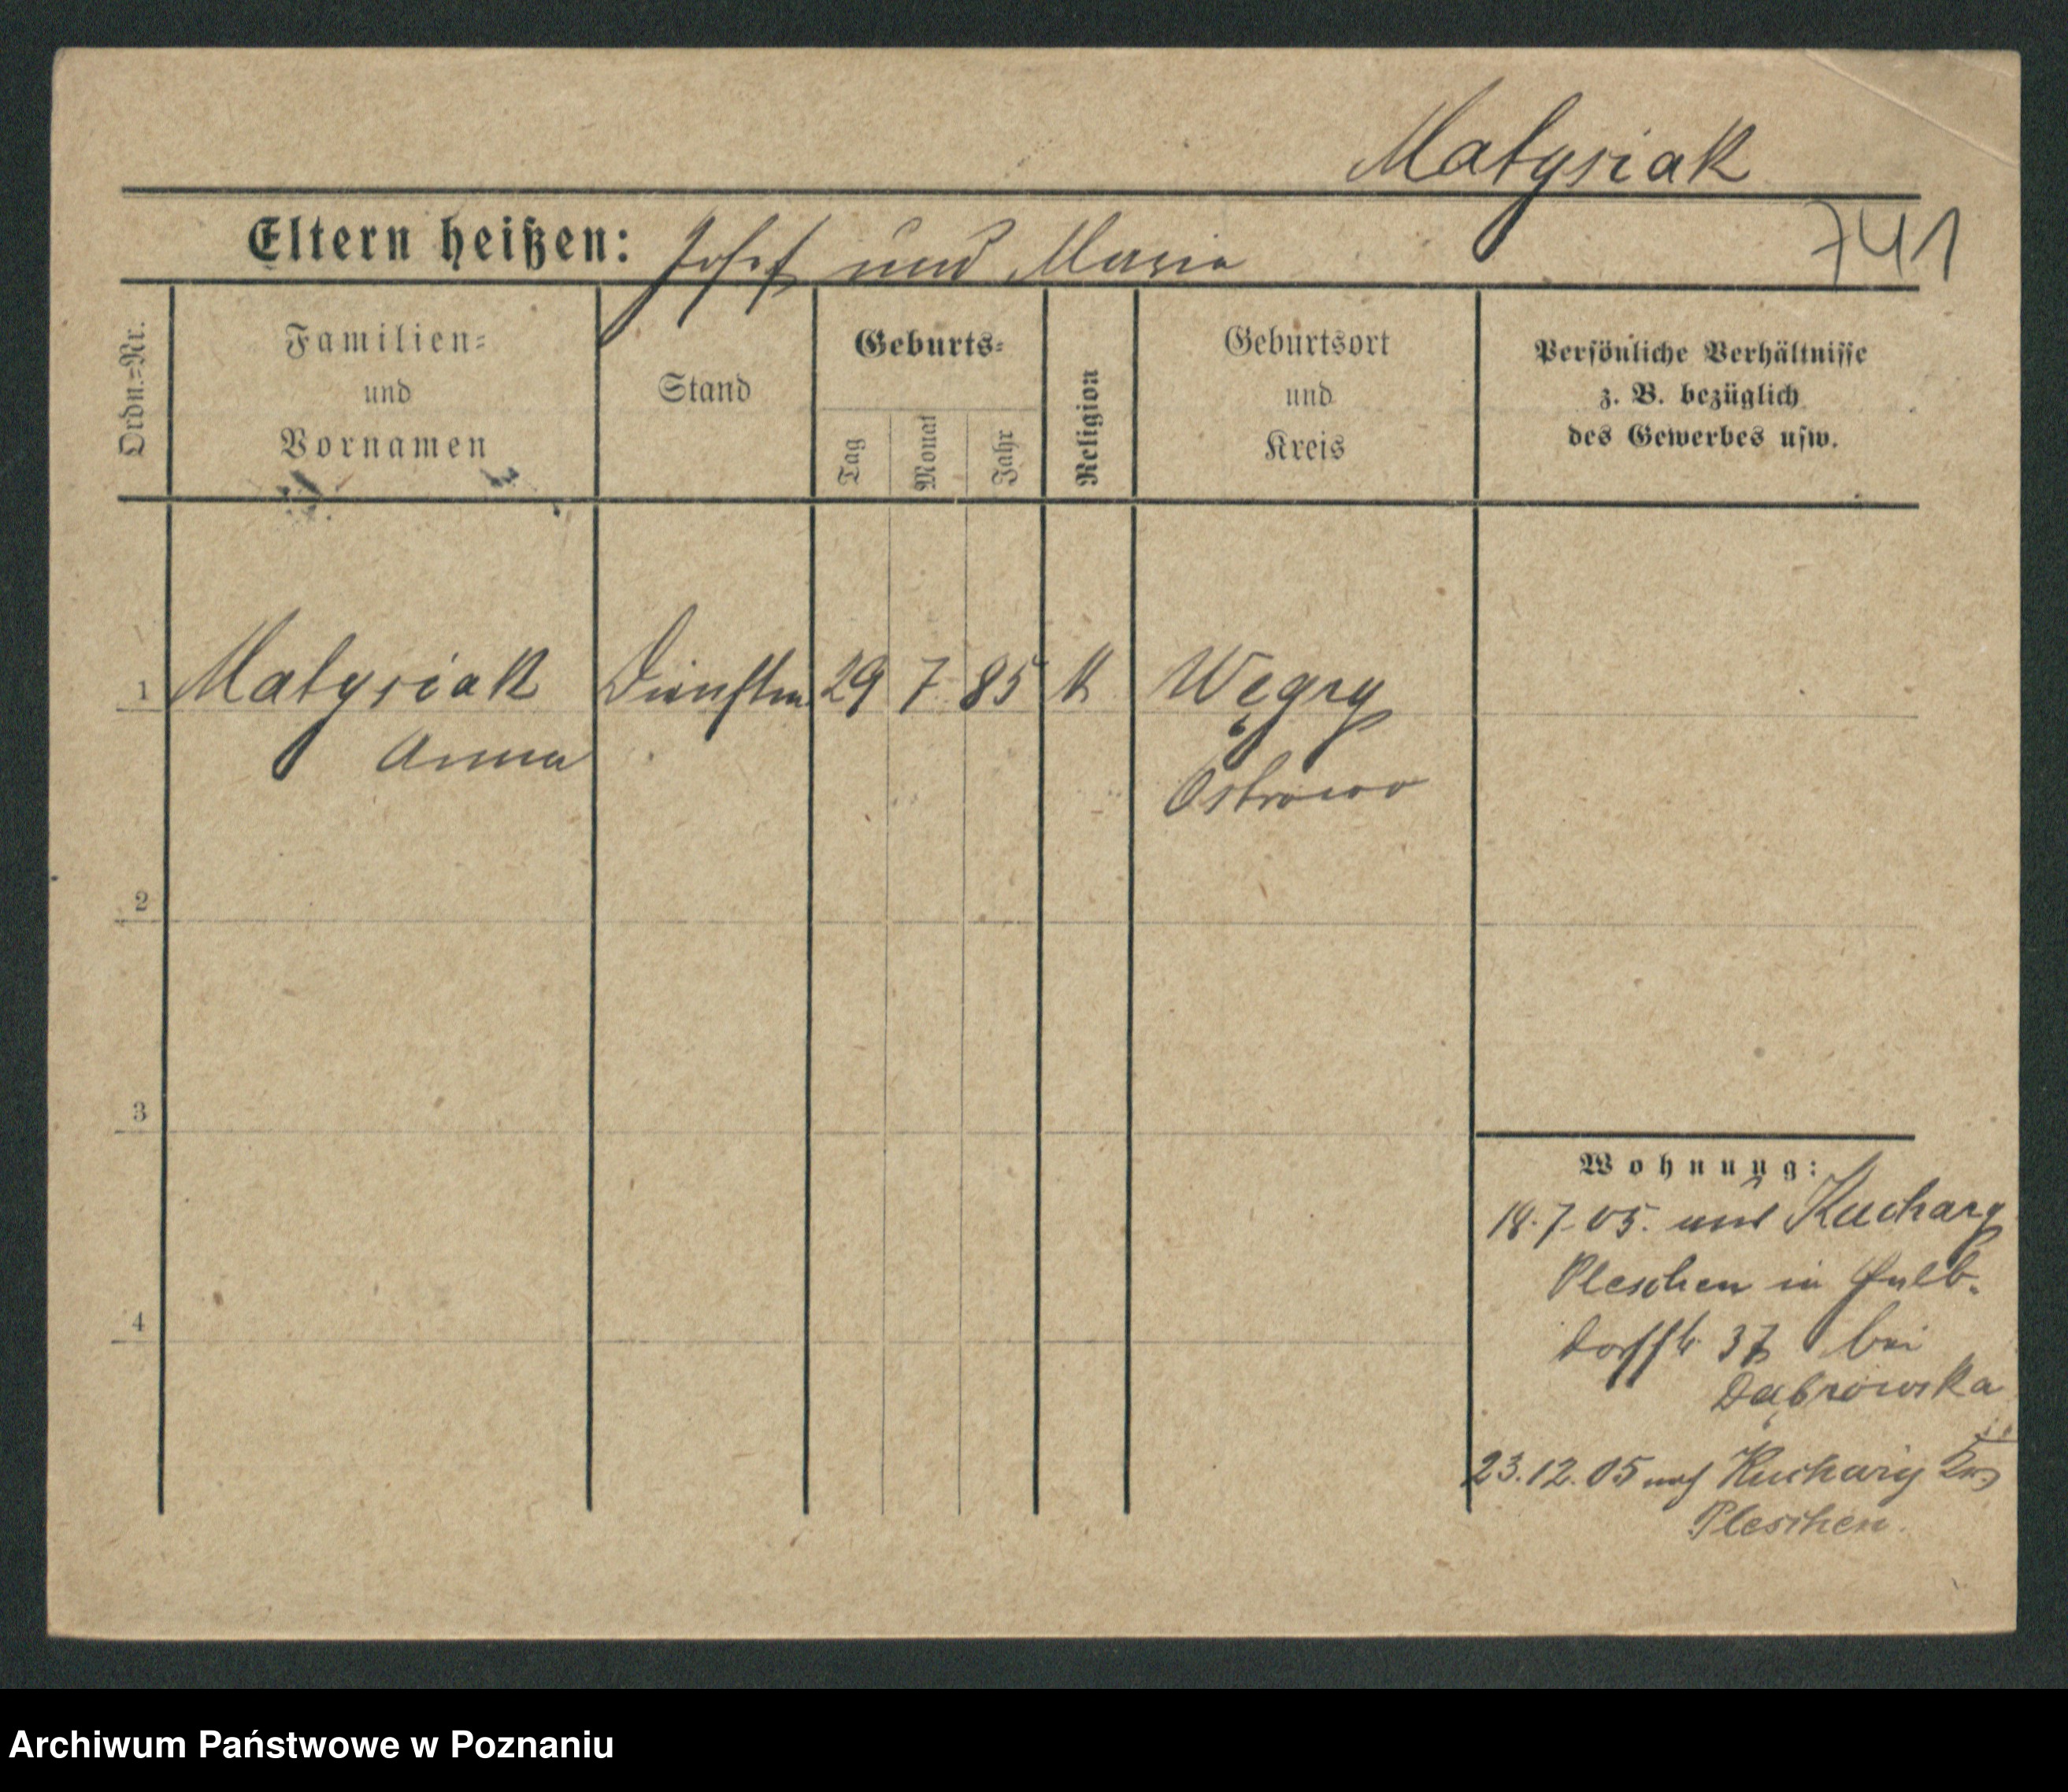 Matysiak
741
Eltern heißen: Josef und Maria
Ordn.=Nr.
Familien=
und
Vornamen
Stand
Geburts=
Tag
Monat
Jahr
Religion
Geburtsort
und
Kreis
Persönliche Verhältnisse
z. B. bezüglich
des Gewerbes usw.
1 Matysiak 29 7 85 k Węgry
Anna
Ostrowo
2
3
4
Wohnung:
18.7.05. aus Kuchary
Pleschen in
37 bei
Dąbrowska
23.12.05 nach Kuchary Krs
Pleschen.
Archiwum Państwowe w Poznaniu